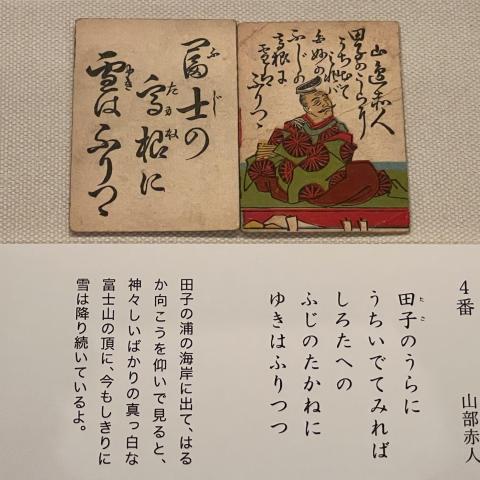 山邊赤人
田子のうらに
うち出て
みれば
白妙の
ふじの
高根に
雪は
ふりつゝ
冨士の
ふじ
高根に
たかね
雪はふりつゝ
ゆき
4番
山部赤人
田子のうらに
たご
うちいでてみれば
しろたへの
ふじのたかねに
ゆきはふりつつ
田子の浦の海岸に出て、はる
か向こうを仰いで見ると、
神々しいばかりの真っ白な
富士山の頂に、今もしきりに
雪は降り続いているよ。